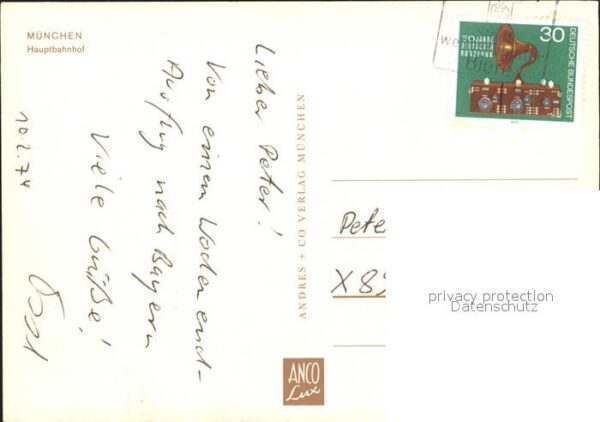 MÜNCHEN
Hauptbahnhof
10.2.74
Lieber Peter!
Von einem Wochenend-
Ausflug nach Bayern
Viele Grüße!
ANDRES + CO VERLAG MÜNCHEN
ANCO
Lux
30
DEUTSCHE BUNDESPOST
50 JAHRE
DEUTSCHER
RUNDFUNK
Pete
X 8
privacy protection
Datenschutz